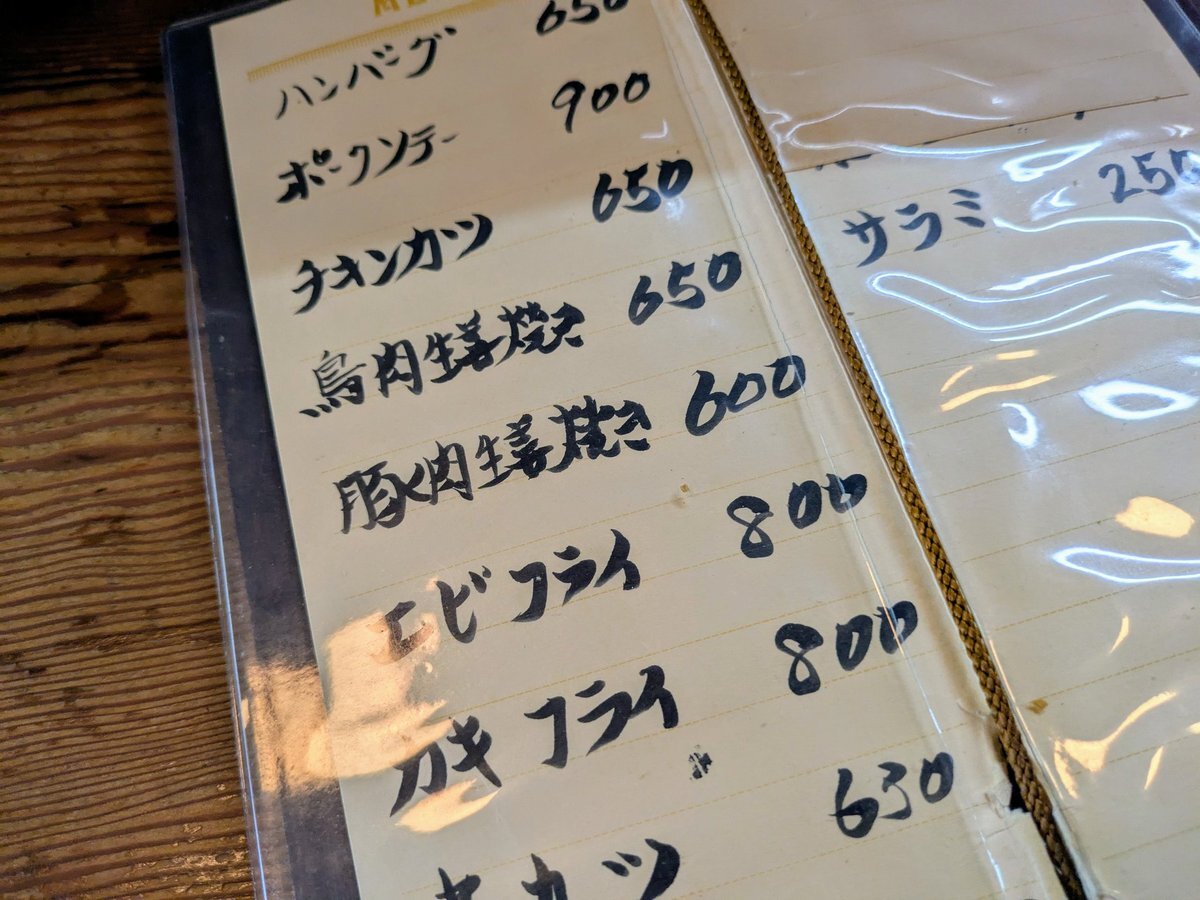 ハンバーグ 650
ポークソテー 900
チキンカツ 650
鳥肉生姜焼き 650
豚肉生姜焼き 600
エビフライ 800
カキフライ 800
カツ 630
サラミ 250